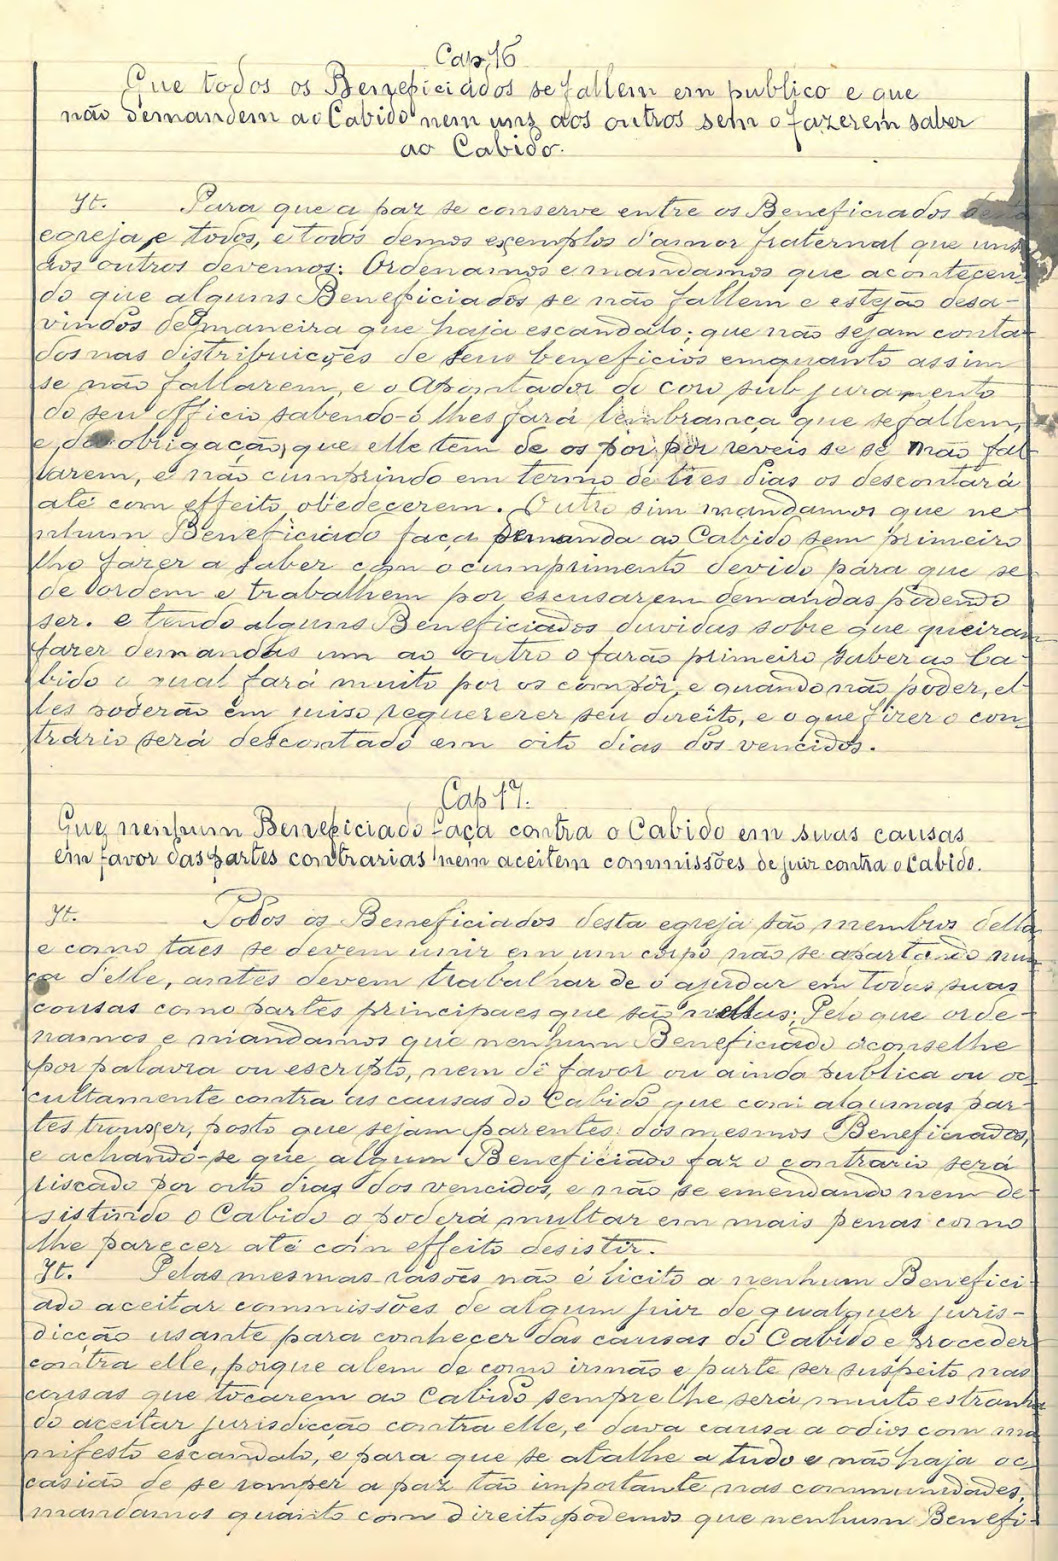 Cap 16
Que todos os Beneficiados se fallem em publico e que
não demandem ao Cabido nem uns aos outros sem o fazerem saber
ao Cabido.
It. Para que a paz se conserve entre os Beneficiados desta
egreja, e todos, e todos demos exemplos d'amor fraternal que uns
aos outros devemos: Ordenamos e mandamos que acontecen-
do que alguns Beneficiados se não fallem e estejão desa-
vindos de maneira que haja escandalo; que não sejam conta-
dos nas distribuições de seus beneficios emquanto assim
se não fallarem, e o Apontador do coro sub juramento
do seu officio sabendo-o lhes fará lembrança que se fallem,
e da obrigação, que elle tem de os pôr por reveis se se não fal-
larem, e não cumprindo em termo de tres dias os descontará
até com effeito obedecerem. Outro sim mandamos que ne-
nhum Beneficiado faça demanda ao Cabido sem primeiro
lho fazer a saber com o cumprimento devido pára que se
de ordem e trabalhem por escusarem demandas podendo
ser. e tendo alguns Beneficiados duvidas sobre que queiram
fazer demandas um ao outro o farão primeiro saber ao Ca-
bido o qual fará muito por os compôr, e quando não poder, el-
les poderão em juiso requererer seu direito, e o que fizer o con-
trário será descontado em oito dias dos vencidos.
Cap 17.
Que nenhum Beneficiado faça contra o Cabido em suas causas
em favor das partes contrarias nem aceitem commissões de juiz contra o Cabido.
It. Todos os Beneficiados desta egreja são membros della
e como taes se devem unir em um corpo não se apartando nun-
ca d'elle, antes devem trabalhar de o ajudar em todas suas
cousas como partes principaes que são nellas; Pelo que orde-
namos e mandamos que nenhum Beneficiado aconselhe
por palavra ou escripto, nem dê favor ou ainda publica ou oc-
cultamente contra as causas do Cabido que com algumas par-
tes trouxer, posto que sejam parentes dos mesmos Beneficiados,
e achando-se que algum Beneficiado faz o contrario será
riscado por oito dias dos vencidos, e não se emendando nem de-
sistindo o Cabido o poderá multar em mais penas como
lhe parecer até com effeito desistir.
It. Pelas mesmas rasões não é licito a nenhum Benefici-
ado aceitar commissões de algum juiz de qualquer juris-
dicção usante para conhecer das causas do Cabido e proceder
contra elle, porque alem de como irmão e parte ser suspeito nas
cousas que tocarem ao Cabido sempre lhe será muito estranha-
do aceitar jurisdicção contra elle, e dava causa a odios com ma-
nifesto escandalo, e para que se atalhe a tudo e não haja oc-
casião de se romper a paz tão importante nas communidades,
mandamos quanto com direito podemos que nenhum Benefi-